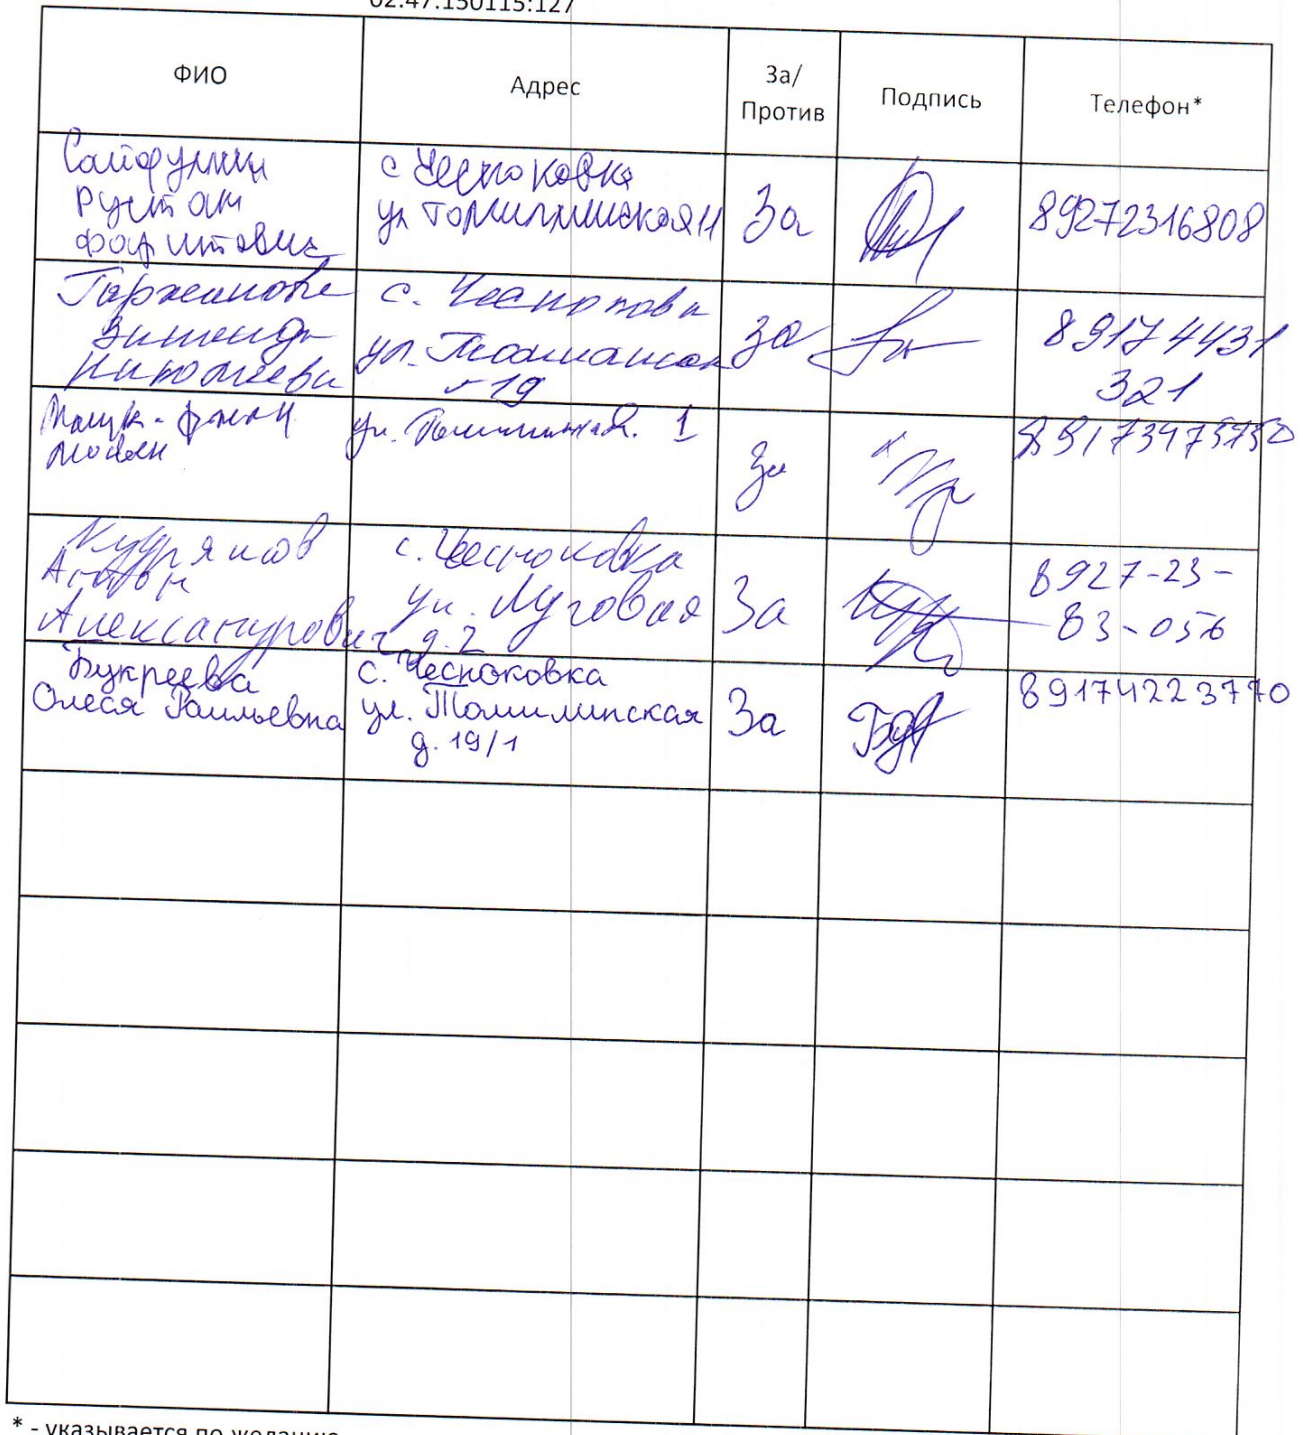 02:47:150115:127
ФИО
Адрес
За/
Против
Подпись
Телефон*
Сайфуллин
Рустам
Фаритович
с Чесноковка
ул Томилинская 11
За
89272316808
Зинаида
Николаевна
с. Чесноковка
ул.
19
За
89174431
321
ул. 1
За
Кудряшов
Антон
Александрович
с. Чесноковка
ул. Луговая
д. 2
За
8927-23-
83-056
Букреева
Олеся Раильевна
с. Чесноковка
ул. Томилинская
д. 19/1
За
89174223770
* - указывается по желанию